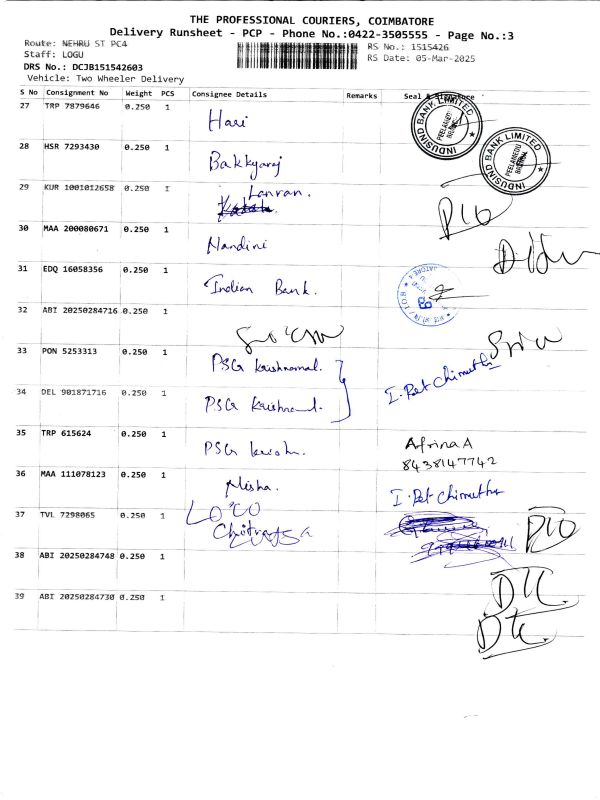 THE PROFESSIONAL COURIERS, COIMBATORE
Delivery Runsheet - PCP - Phone No.:0422-3505555 - Page No.:3
Route: NEHRU ST PC4
RS No.: 1515426
Staff: LOGU
RS Date: 05-Mar-2025
DRS No.: DCJB151542603
Vehicle: Two Wheeler Delivery
S No Consignment No Weight PCS Consignee Details Remarks Seal & Signature
27 TRP 7879646 0.250 1 Hari
INDUSIND BANK LIMITED
PEELAMEDU
28 HSR 7293430 0.250 1 Bakkyaraj
INDUSIND BANK LIMITED
PEELAMEDU
29 KUR 1001012658 0.250 1
30 MAA 200080671 0.250 1 Nandini
31 EDQ 16058356 0.250 1 Indian Bank.
32 ABI 20250284716 0.250 1
33 PON 5253313 0.250 1 PSG Krishnamal.
34 DEL 901871716 0.250 1 PSG
35 TRP 615624 0.250 1 PSG
Afrina A
8438147742
36 MAA 111078123 0.250 1 Nisha.
37 TVL 7298065 0.250 1
38 ABI 20250284748 0.250 1
39 ABI 20250284730 0.250 1